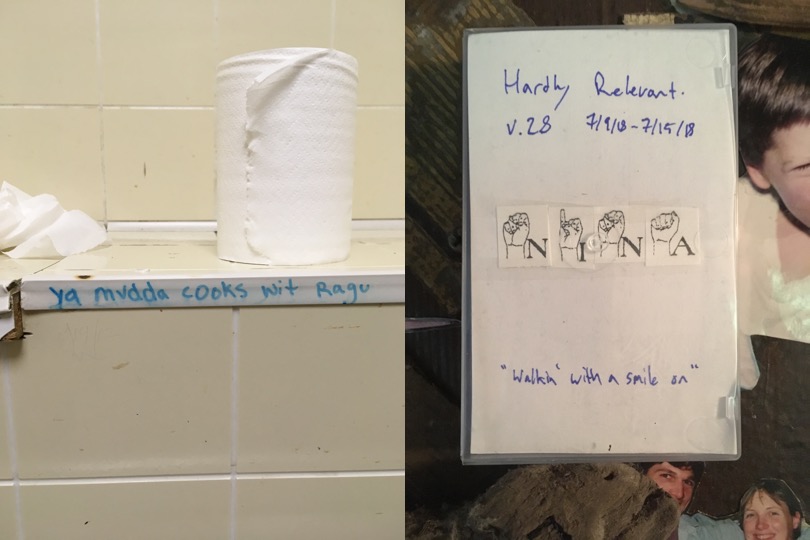 ya mudda cooks wit Ragu
Hardly Relevant.
v.28 7/9/18-7/15/18
N I N A
"Walkin' with a smile on"